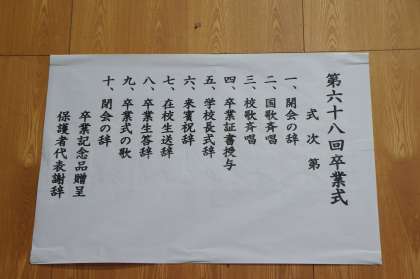 第六十八回卒業式
式次第
一、開会の辞
二、国歌斉唱
三、校歌斉唱
四、卒業証書授与
五、学校長式辞
六、来賓祝辞
七、在校生送辞
八、卒業生答辞
九、卒業式の歌
十、閉会の辞
卒業記念品贈呈
保護者代表謝辞